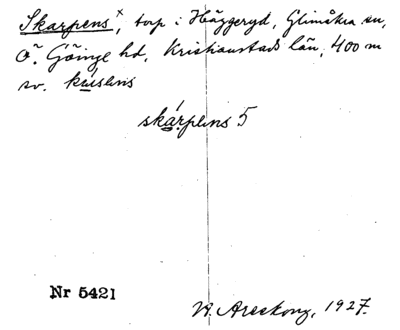 Skarpens ˣ, torp i Häggeryd, Glimåkra sn,
Ö. Göinge hd, Kristianstads län, 400 m
sv. krúslins
skárplins 5
Nr 5421
W. Areskoug, 1927.